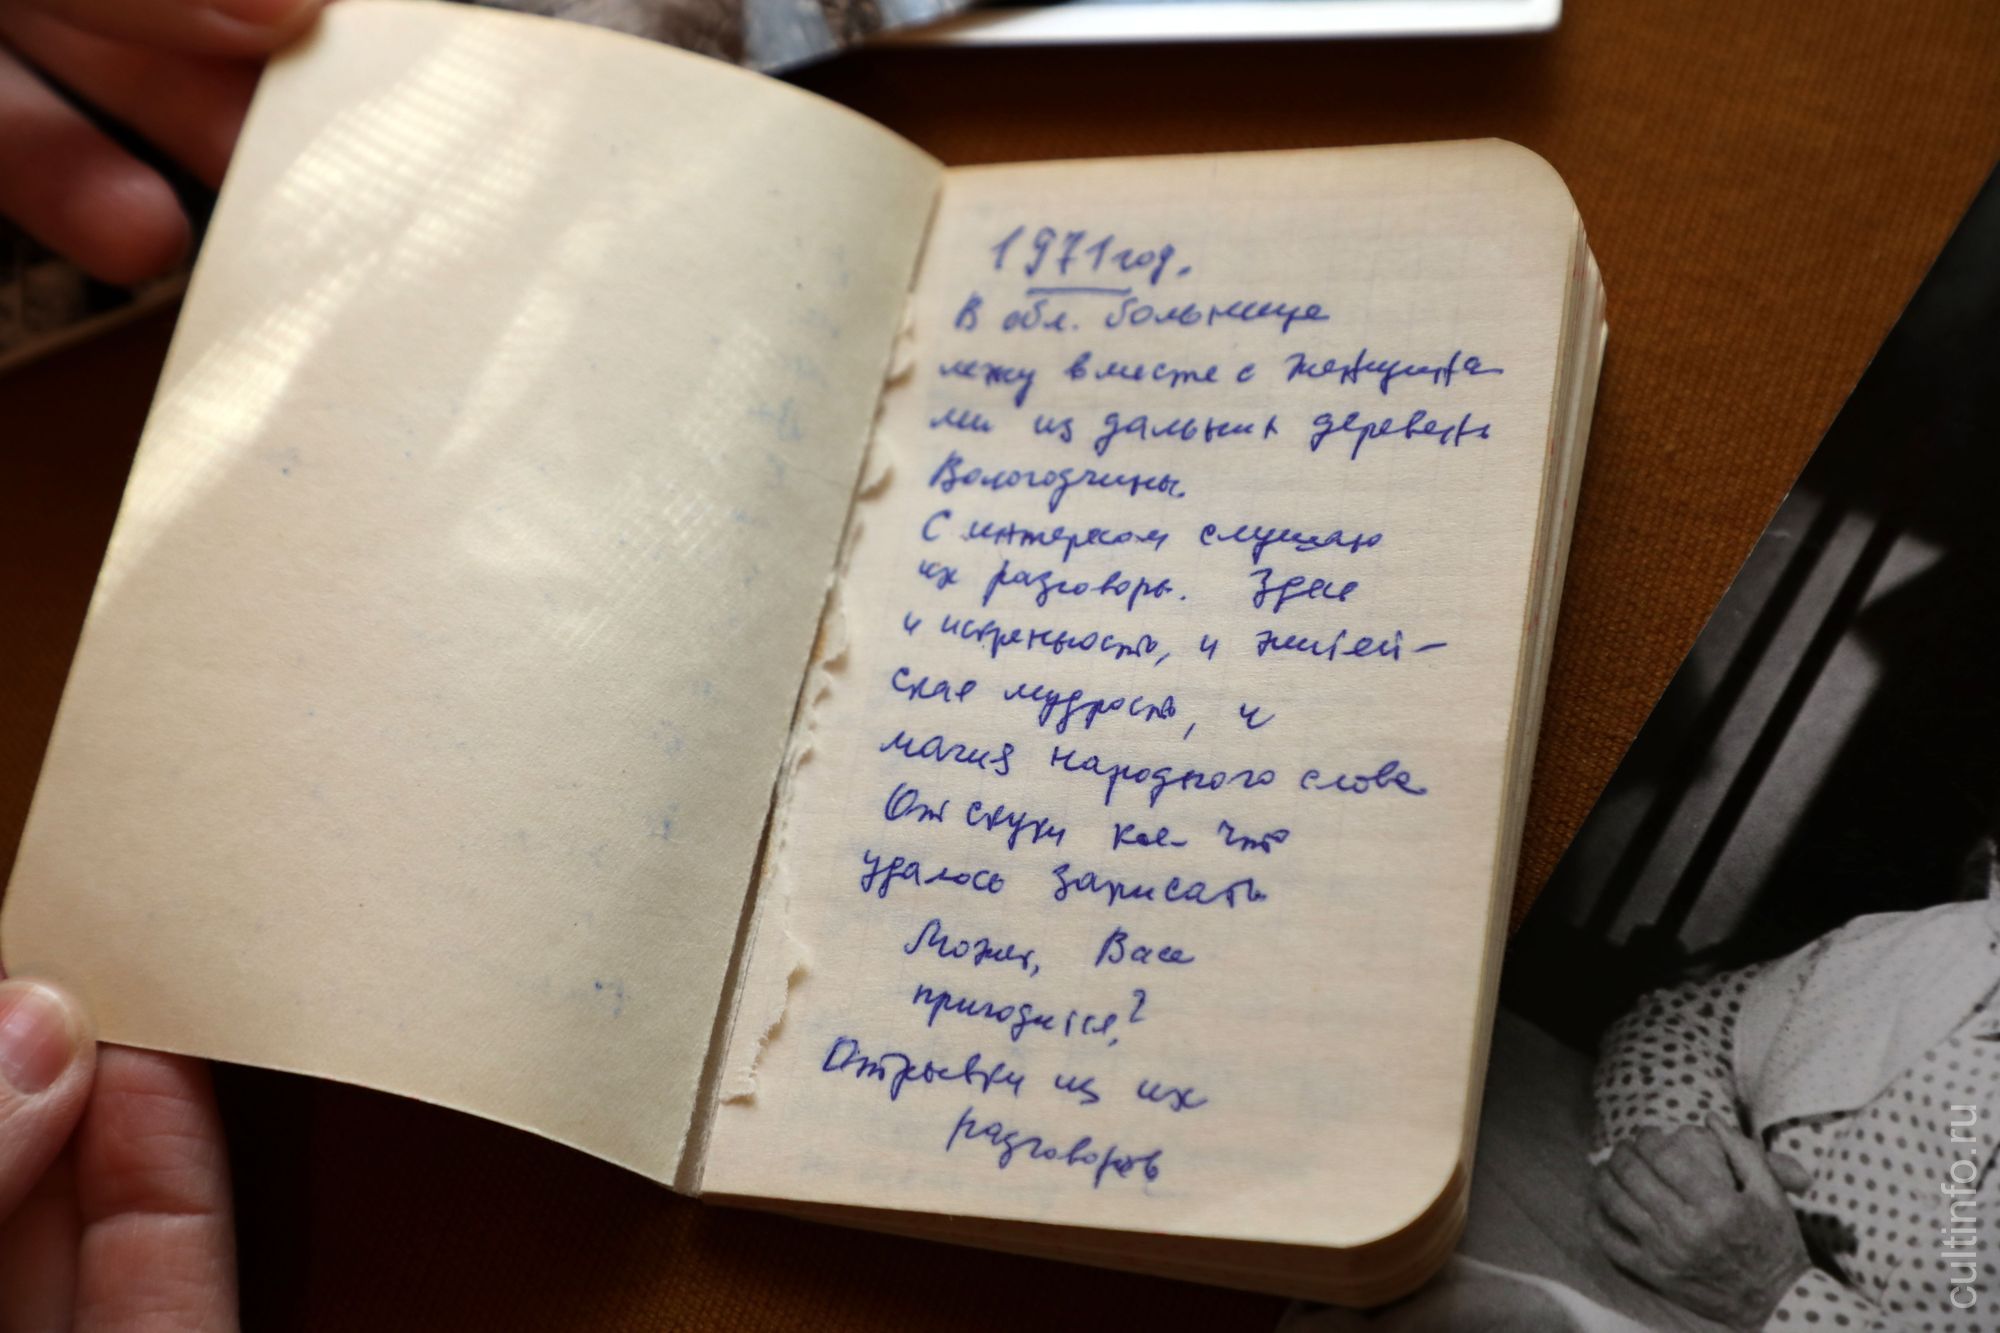 1971 год.
В обл. больнице
лежу вместе с женщина-
ми из дальних деревень
Вологодчины.
С интересом слушаю
их разговоры. Здесь
и искренность, и житей-
ская мудрость, и
магия народного слова
От скуки кое-что
удалось записать
Может, Васе
пригодится?
Отрывки из их
разговоров
cultinfo.ru